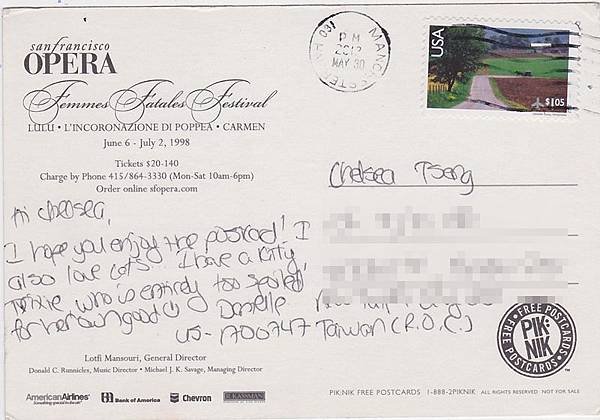 san francisco
OPERA
Femmes Fatales Festival
LULU • L'INCORONAZIONE DI POPPEA • CARMEN
June 6 - July 2, 1998
Tickets $20-140
Charge by Phone 415/864-3330 (Mon-Sat 10am-6pm)
Order online sfopera.com
Hi Chelsea,
I hope you enjoy the postcard! I
also love cats... I have a kitty,
Trixie who is entirely too spoiled
for her own good ☺ Danielle
US-1700747
Lotfi Mansouri, General Director
Donald C. Runnicles, Music Director • Michael J. K. Savage, Managing Director
AmericanAirlines
Bank of America
Chevron
MANCHESTER NH 031
PM
2012
MAY 30
USA
$1.05
Chelsea Tseng
Taiwan (R.O.C.)
FREE POSTCARDS
PIK:
NIK
FREE POSTCARDS
PIK:NIK FREE POSTCARDS 1-888-2PIKNIK ALL RIGHTS RESERVED NOT FOR SALE